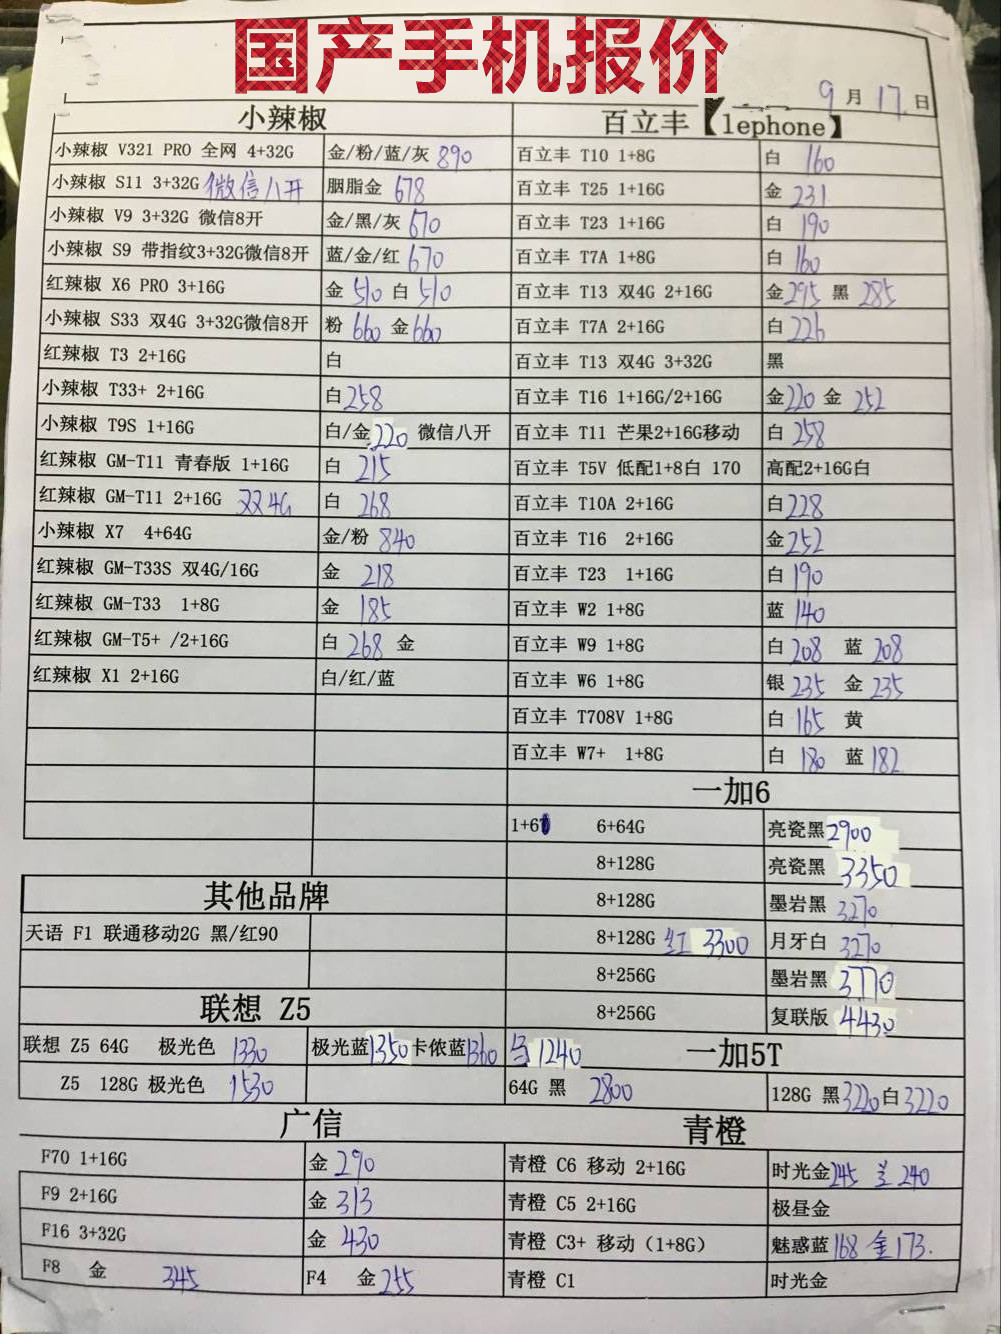 国产手机报价
9月17日
小辣椒 百立丰【lephone】
小辣椒 V321 PRO 全网 4+32G 金/粉/蓝/灰 890 百立丰 T10 1+8G 白 160
小辣椒 S11 3+32G 微信八开 胭脂金 678 百立丰 T25 1+16G 金 231
小辣椒 V9 3+32G 微信8开 金/黑/灰 670 百立丰 T23 1+16G 白 190
小辣椒 S9 带指纹3+32G微信8开 蓝/金/红 670 百立丰 T7A 1+8G 白 160
红辣椒 X6 PRO 3+16G 金 510 白 510 百立丰 T13 双4G 2+16G 金 295 黑 285
小辣椒 S33 双4G 3+32G微信8开 粉 660 金 660 百立丰 T7A 2+16G 白 226
红辣椒 T3 2+16G 白 百立丰 T13 双4G 3+32G 黑
小辣椒 T33+ 2+16G 白 258 百立丰 T16 1+16G/2+16G 金 220 金 252
小辣椒 T9S 1+16G 白/金 220 微信八开 百立丰 T11 芒果2+16G移动 白 258
红辣椒 GM-T11 青春版 1+16G 白 215 百立丰 T5V 低配1+8白 170 高配2+16G白
红辣椒 GM-T11 2+16G 双4G 白 268 百立丰 T10A 2+16G 白 228
小辣椒 X7 4+64G 金/粉 840 百立丰 T16 2+16G 金 252
红辣椒 GM-T33S 双4G/16G 金 218 百立丰 T23 1+16G 白 190
红辣椒 GM-T33 1+8G 金 185 百立丰 W2 1+8G 蓝 140
红辣椒 GM-T5+ /2+16G 白 268 金 百立丰 W9 1+8G 白 208 蓝 208
红辣椒 X1 2+16G 白/红/蓝 百立丰 W6 1+8G 银 235 金 235
百立丰 T708V 1+8G 白 165 黄
百立丰 W7+ 1+8G 白 180 蓝 182
一加6
1+6 6+64G 亮瓷黑 2900
8+128G 亮瓷黑 3350
其他品牌 8+128G 墨岩黑 3270
天语 F1 联通移动2G 黑/红90 8+128G 红 3300 月牙白 3270
8+256G 墨岩黑 3770
联想 Z5 8+256G 复联版 4430
联想 Z5 64G 极光色 1330 极光蓝 1350 卡侬蓝 1360 1240 一加5T
Z5 128G 极光色 1530 64G 黑 2800 128G 黑 3220 白 3220
广信 青橙
F70 1+16G 金 290 青橙 C6 移动 2+16G 时光金 245 兰 240
F9 2+16G 金 313 青橙 C5 2+16G 极昼金
F16 3+32G 金 430 青橙 C3+ 移动（1+8G） 魅惑蓝 168 金 173.
F8 金 345 F4 金 255 青橙 C1 时光金